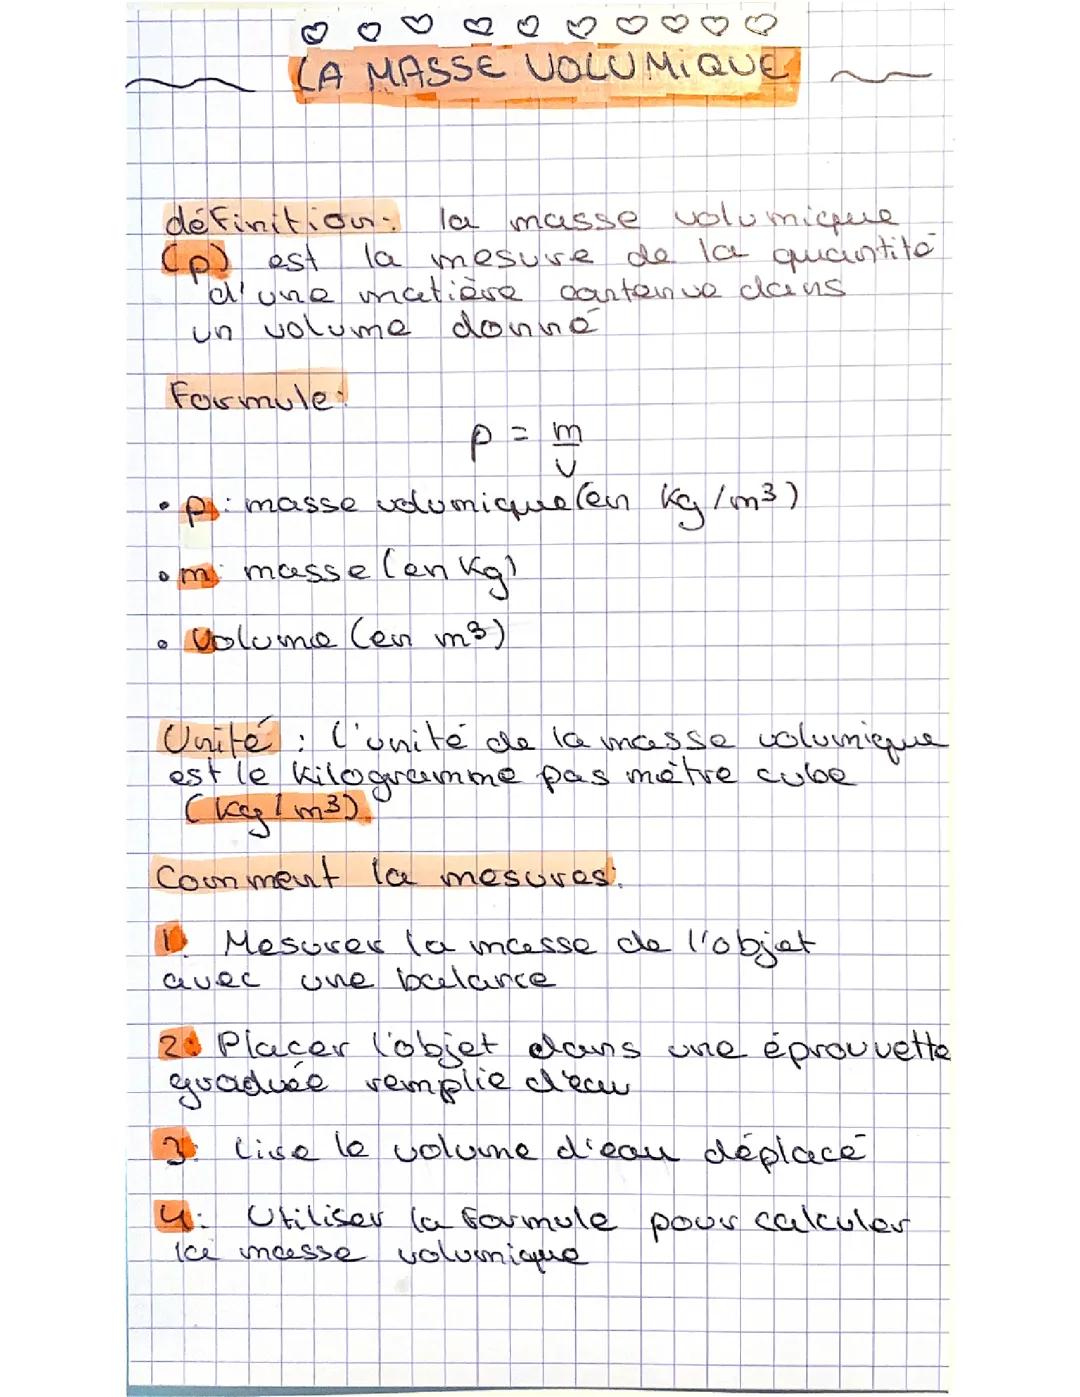 LA MASSE VOLUMIQUE
définition: la masse volumique
(ρ) est la mesure de la quantité
d'une matière contenue dans
un volume donné
Formule:
ρ = m
V
• ρ: masse volumique (en kg/m³)
• m: masse (en kg)
• Volume (en m³)
Unité : l'unité de la masse volumique
est le kilogramme pas mètre cube
(kg/m³)
Comment la mesurer:
1. Mesurer la masse de l'objet
avec une balance
2: Placer l'objet dans une éprouvette
graduée remplie d'eau
3: Lire le volume d'eau déplacé
4: Utiliser la formule pour calculer
la masse volumique